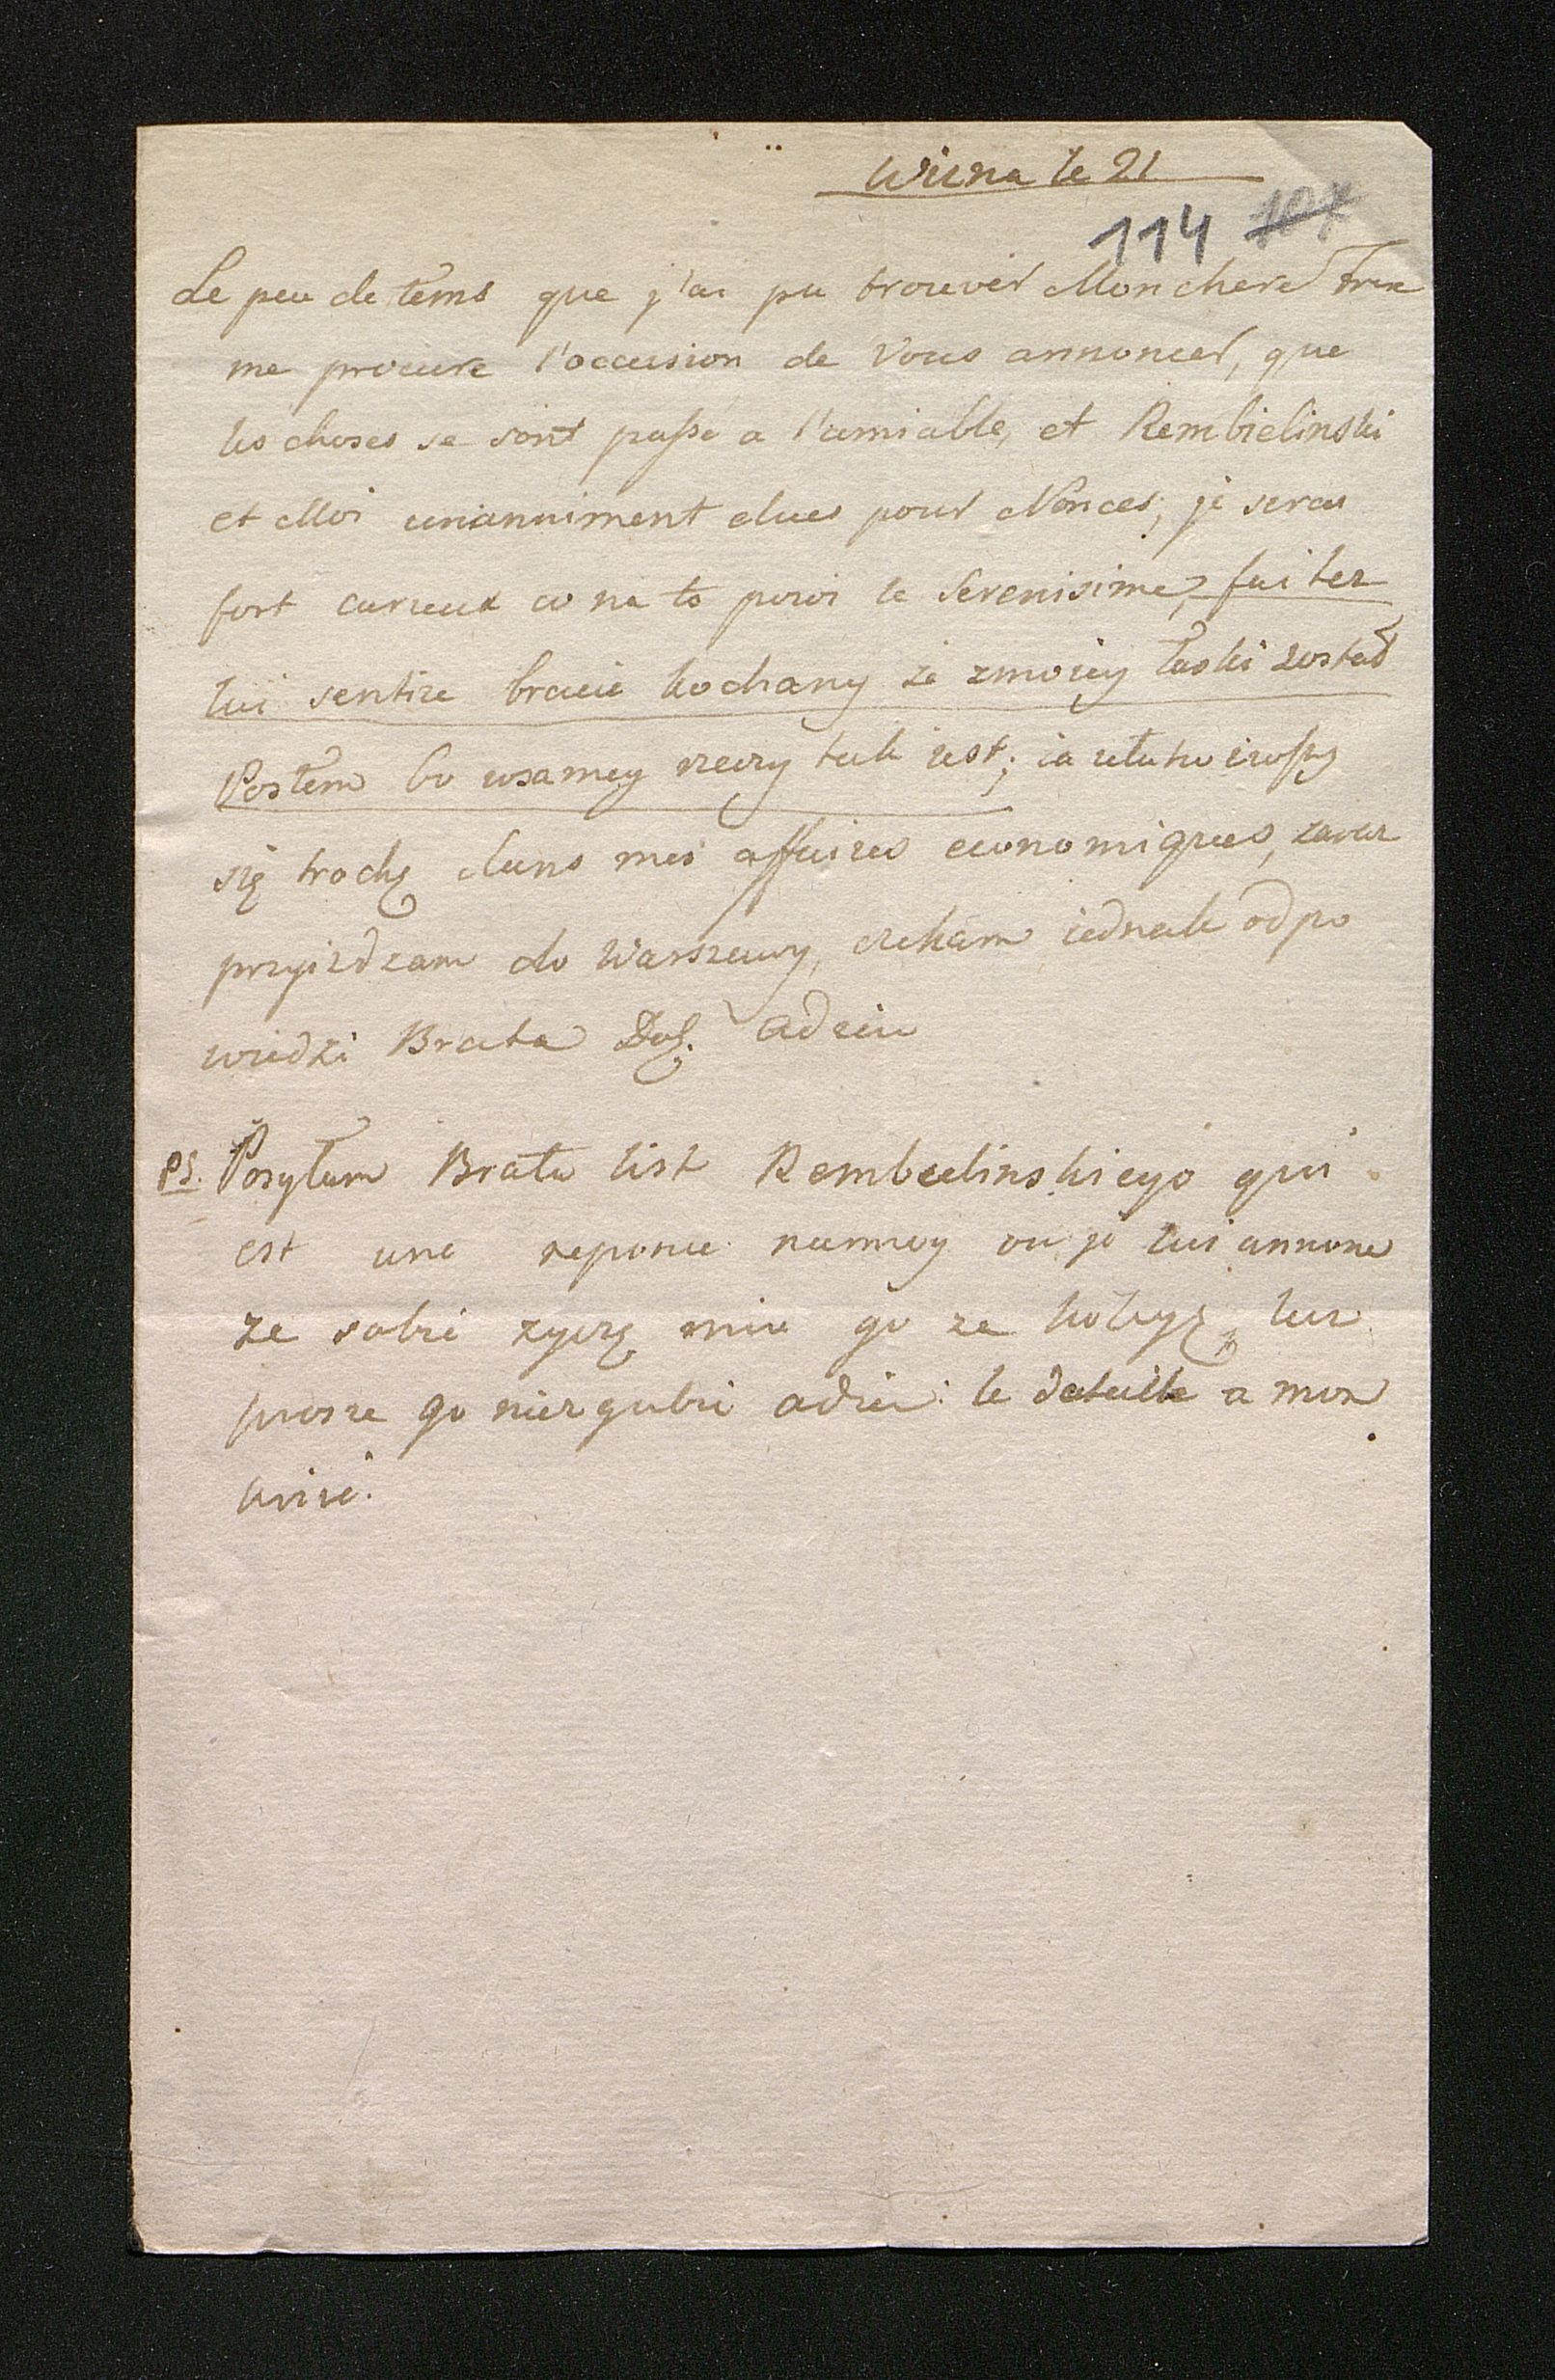 Wizna le 21
114 107
Le peu de tems que j'ai pu trouver Mon chere Frere
me procure l'occasion de Vous annoncer, que
les choses se sont passe a l'amiable, et Rembielinski
et Moi unanniment elues pour Nonces, je serai
fort curieux co na to powi le Serenisime, faitez
lui sentire bracie kochany ze zmoiey łaski został
Posłem bo wsamey rzeczy tak iest; ia
się trochę dans mes affaires economiques, zaraz
przyizdzam do Warszawy, czekam iednak odpo
wiedzi Brata Dob. adieu
PS. Posyłam Bratu list Rembielinskiego qui
est une reponce namoy ou je lui annonce
ze sobie zyczę miec go za kolegę, lecz
prosze go niezgubic adieu: le detaille a mon